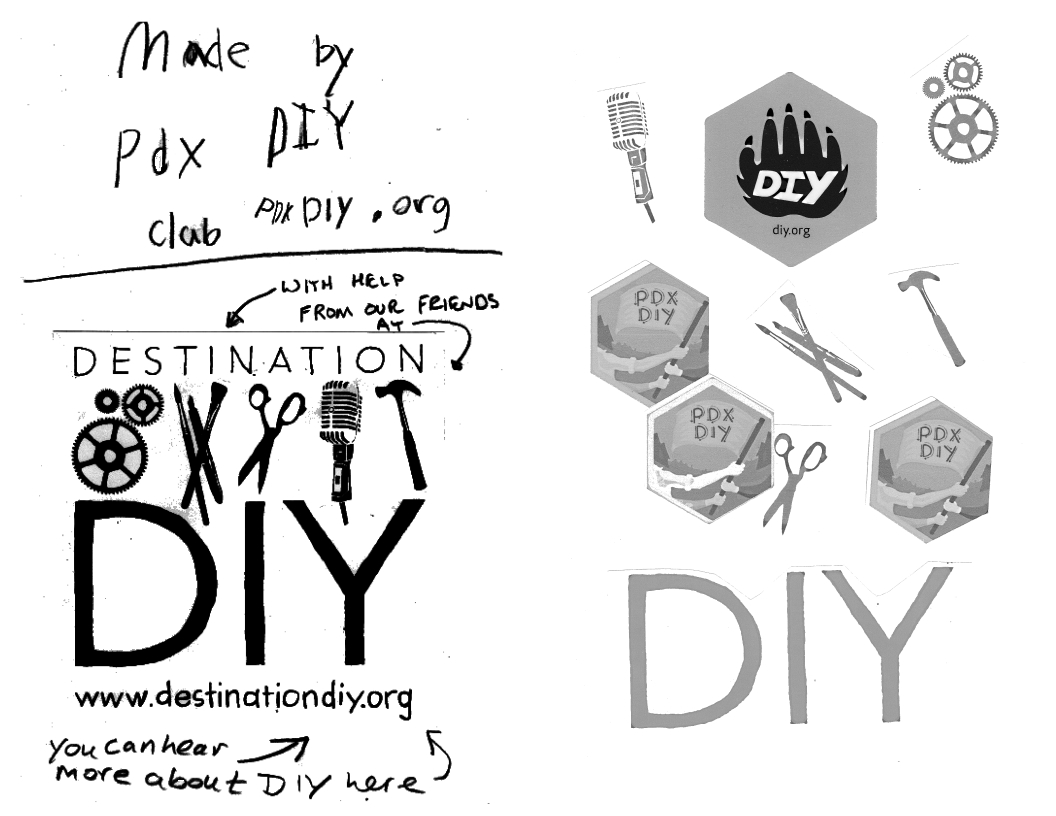 Made by
Pdx DIY
club PDX DIY.org
WITH HELP
FROM OUR FRIENDS
AT
DESTINATION
DIY
www.destinationdiy.org
you can hear
more about DIY here
DIY
diy.org
PDX
DIY
PDX
DIY
PDX
DIY
DIY